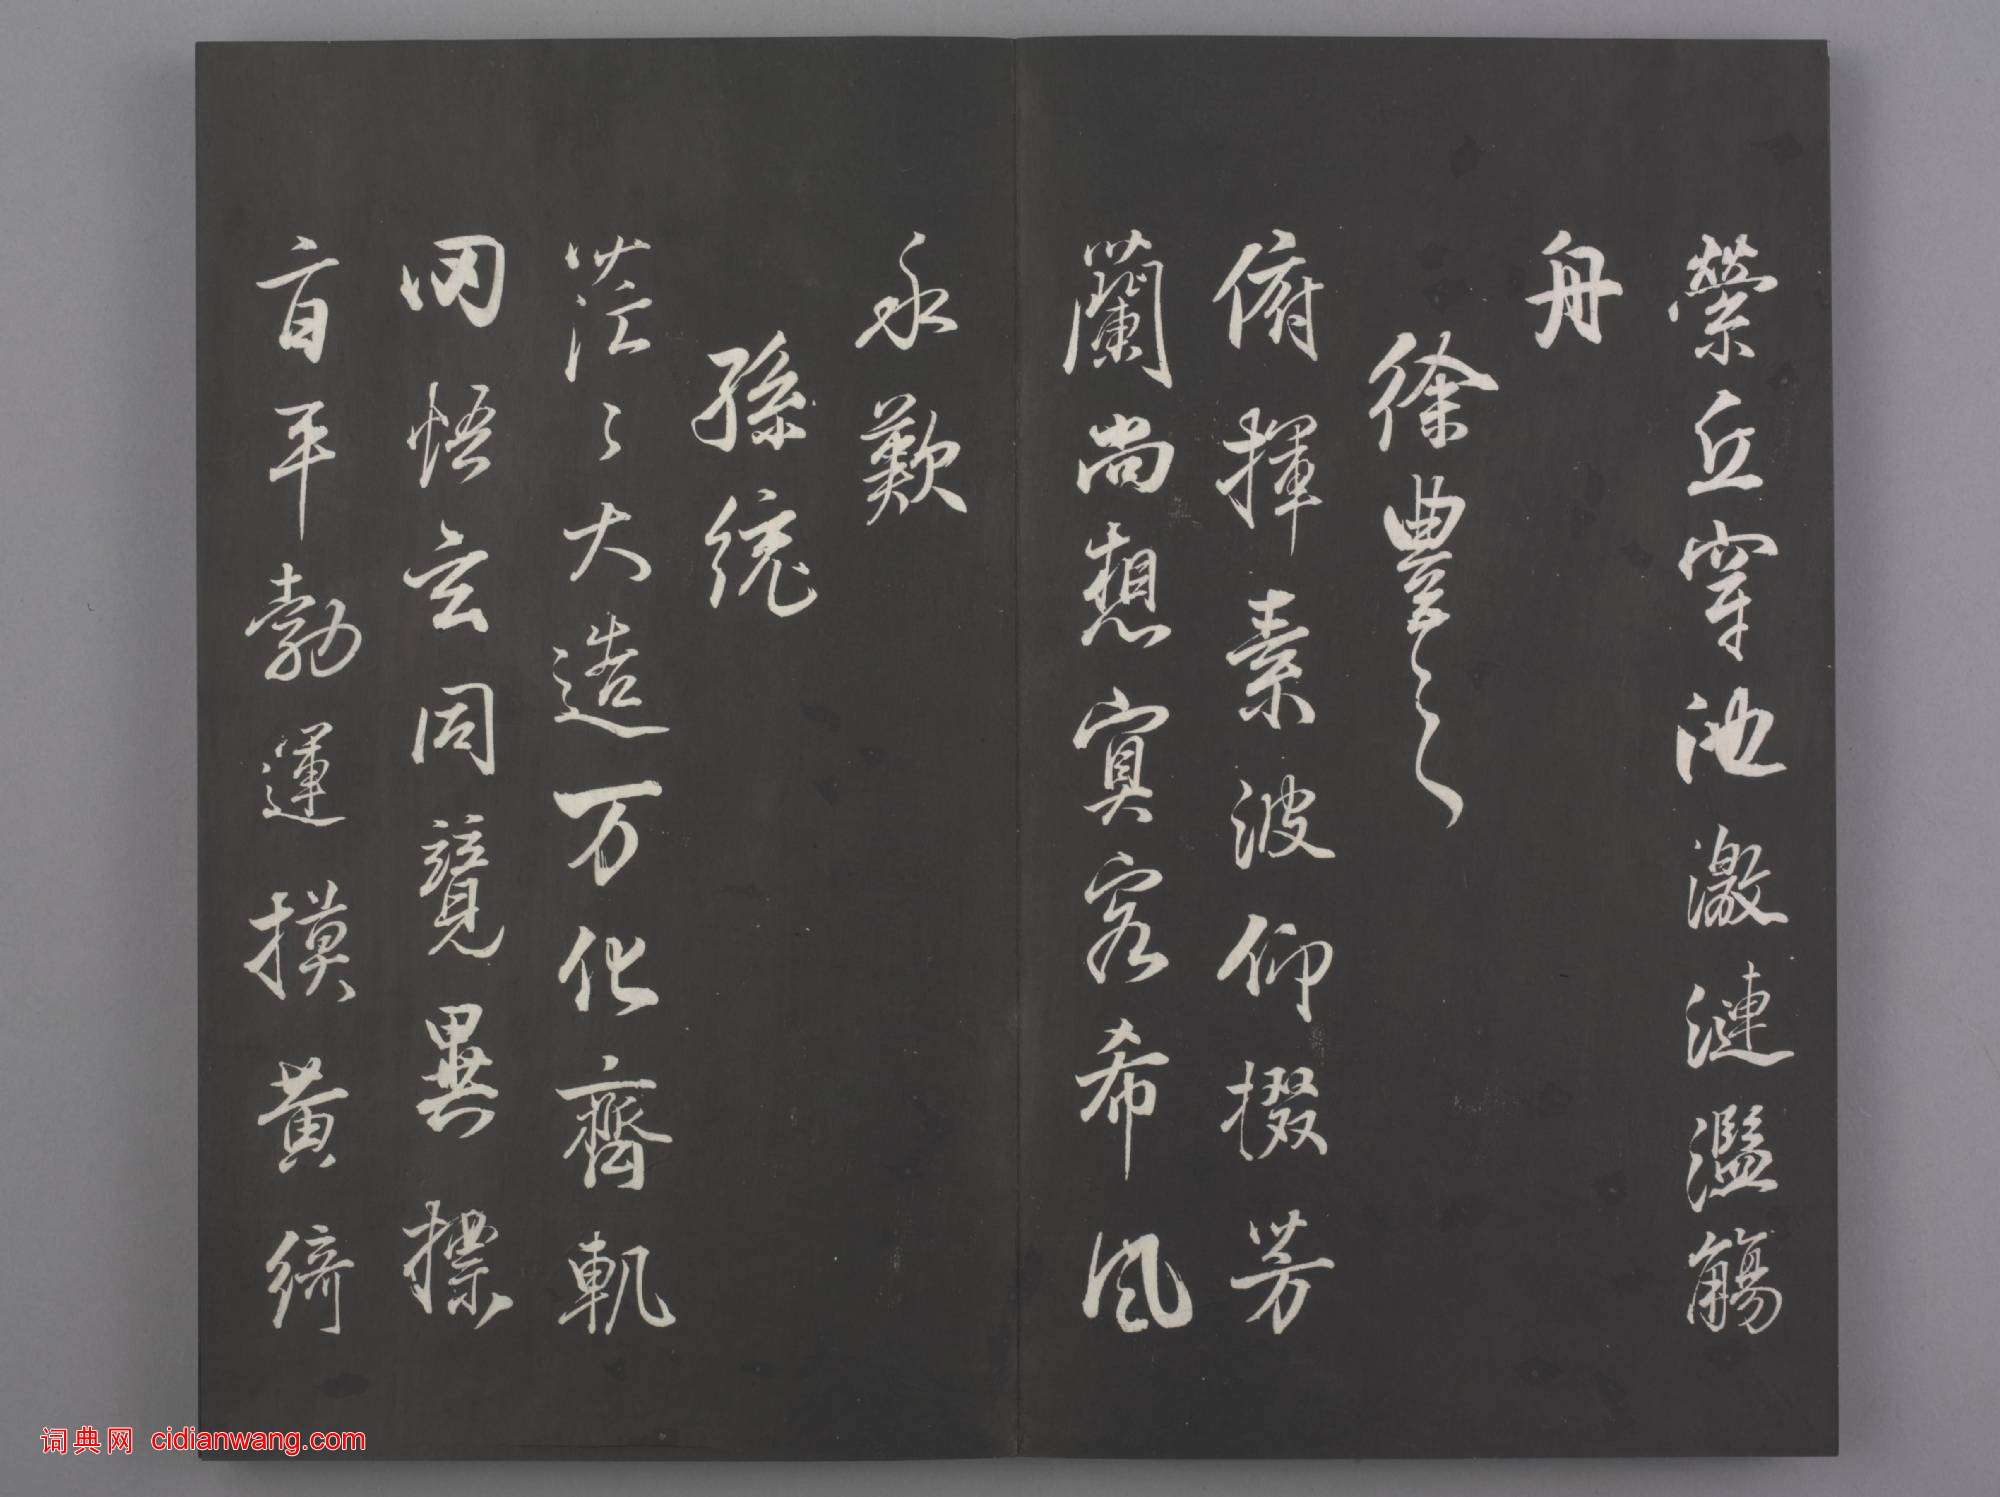 縈丘穿池激漣濫觴
舟
徐豐之
俯揮素波仰掇芳
蘭尚想嘉客希風
永歎
孫統
茫〻大造万化齊軌
罔悟玄同競異摽
旨平勃運摸黄綺
词典网 cidianwang.com